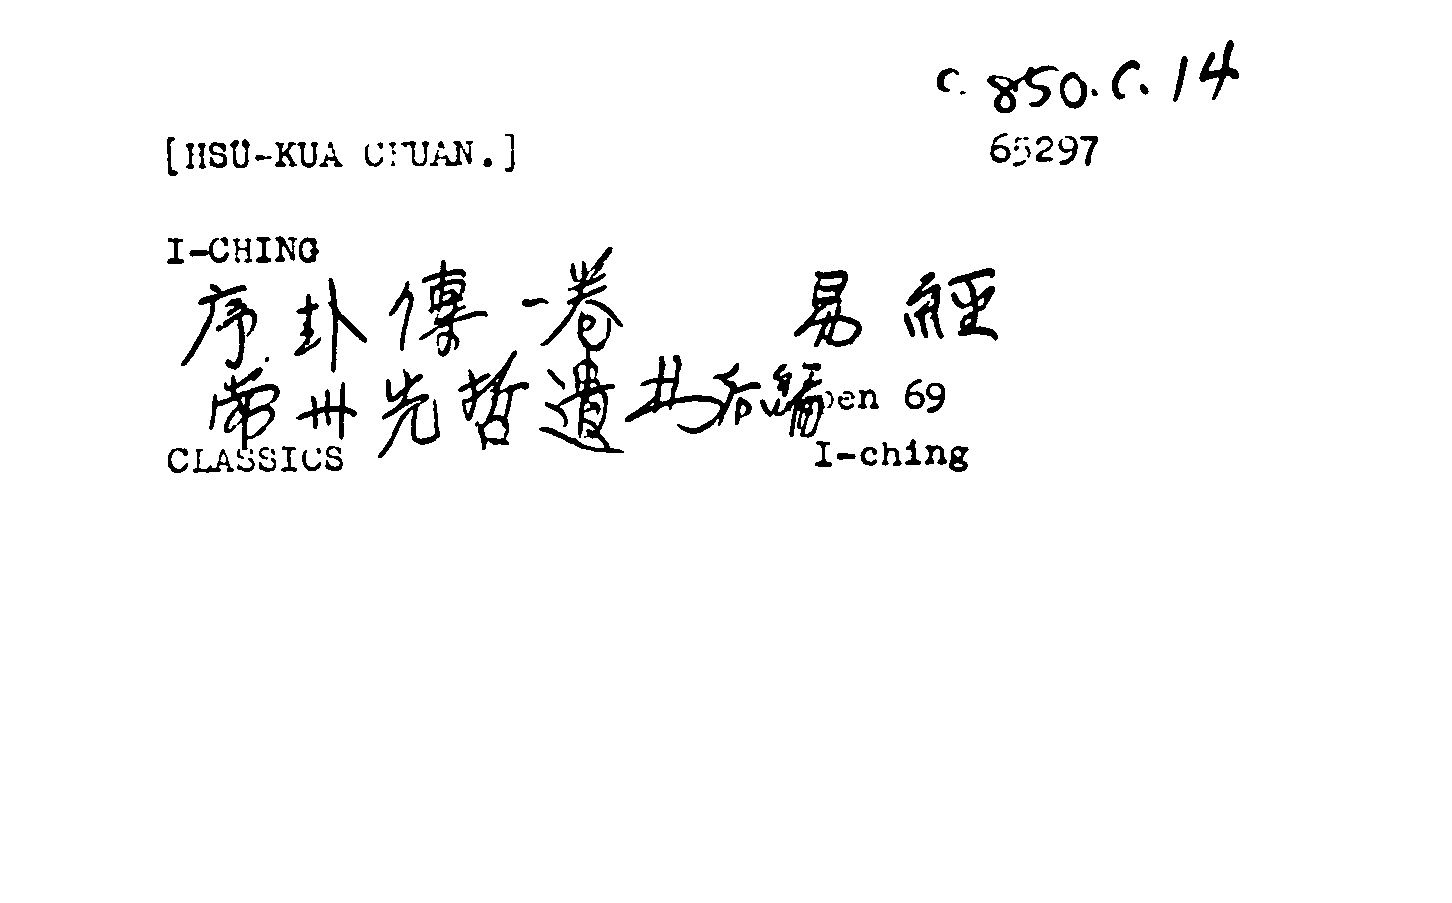 C. 850.C.14
[HSÜ-KUA CHUAN.] 65297
I-CHING
序卦傳一卷 易經
常州先哲遺书后编 pen 69
CLASSICS I-ching